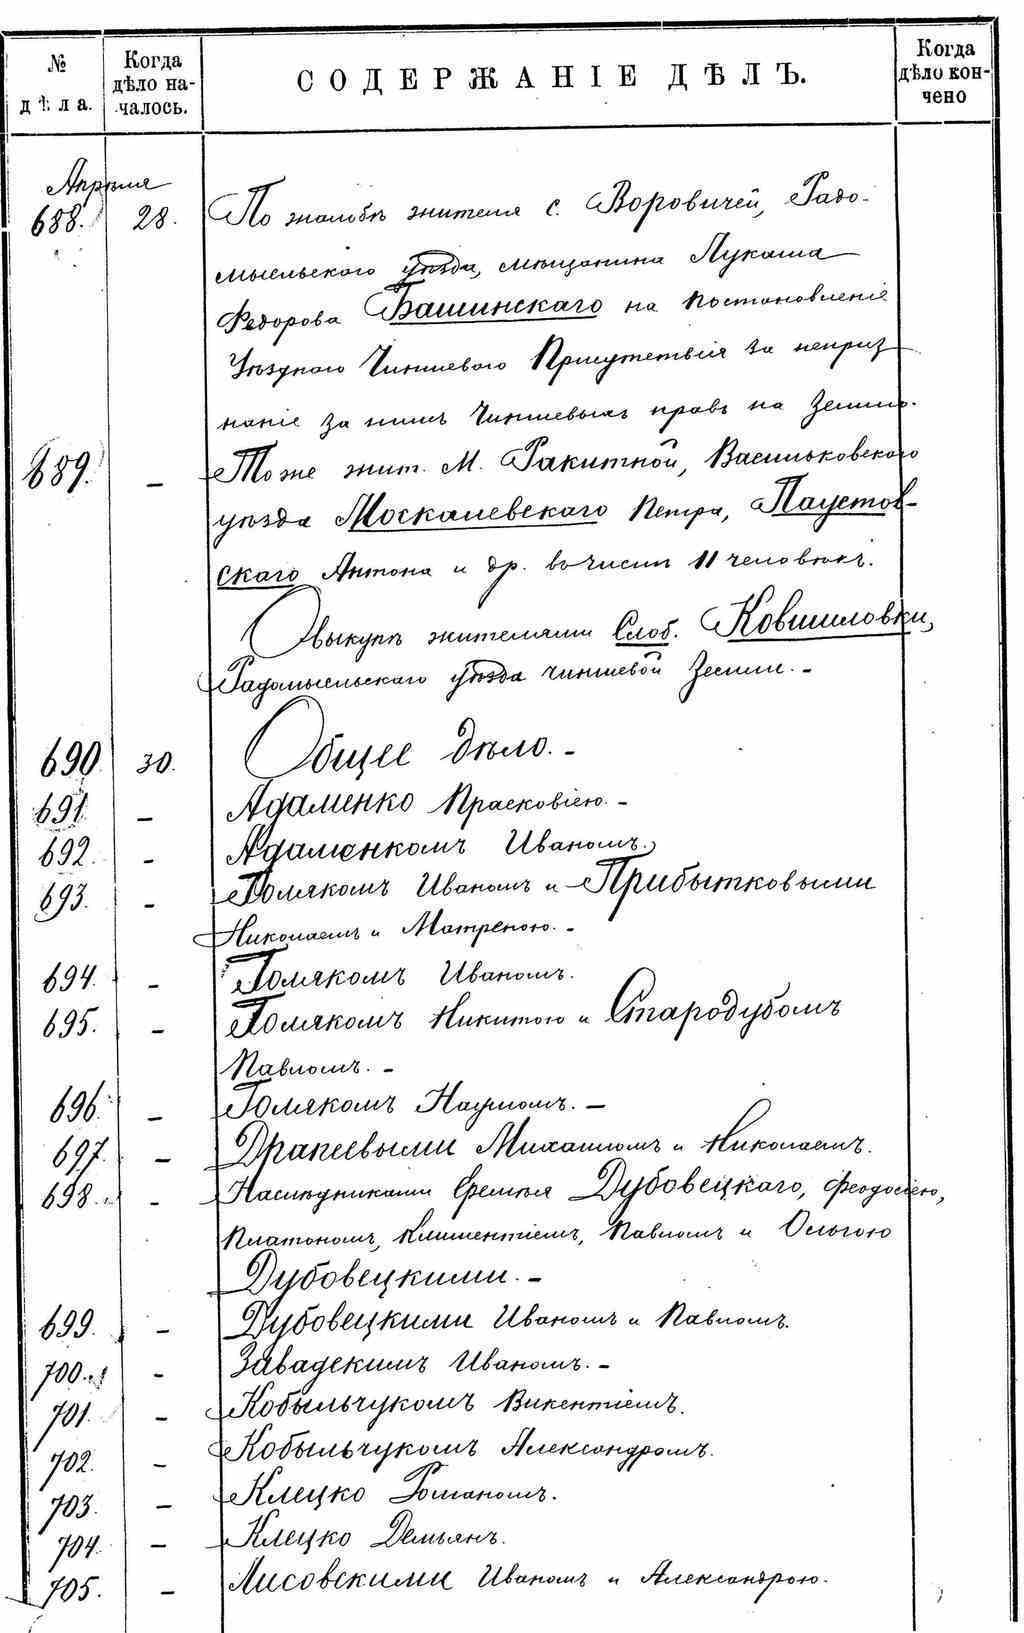 № дѣла. Когда дѣло началось. СОДЕРЖАНІЕ ДѢЛЪ. Когда дѣло кончено
Апрѣля
688. 28. По жалобѣ жителя с. Воровичей, Радо-
мысльскаго уѣзда, мѣщанина Лукаша
Федорова Башинскаго на постановленіе
Уѣзднаго Чиншеваго Присутствія за неприз
наніе за нимъ Чиншевыхъ правъ на Землю.
689. – Тоже жит. М. Ракитной, Васильковскаго
уѣзда Москалевскаго Петра, Паустов-
скаго Антона и др. въ числѣ 11 человѣкъ.
О выкупѣ жителями Слоб. Ковшиловки,
Радомысльскаго уѣзда чиншевой Земли. –
690 30. Общее дѣло. –
691 – Адаменко Прасковіею. –
692. – Адаменкомъ Иваномъ.
693. – Голякомъ Иваномъ и Прибытковыми
Николаемъ и Матреною. –
694. – Голякомъ Иваномъ.
695. – Голякомъ Никитою и Стародубомъ
Павломъ. –
696. – Голякомъ Наумомъ. –
697. – Драпеевыми Михаиломъ и Николаемъ.
698. – Наслѣдниками Еремѣя Дубовецкаго, Феодосіею,
Платономъ, Климентіемъ, Павломъ и Ольгою
Дубовецкими. –
699. – Дубовецкими Иваномъ и Павломъ.
700. – Завадскимъ Иваномъ. –
701. – Кобыльчукомъ Викентіемъ.
702. – Кобыльчукомъ Александромъ.
703. – Клецко Романомъ.
704. – Клецко Демьянъ.
705. – Лисовскими Иваномъ и Александрою.